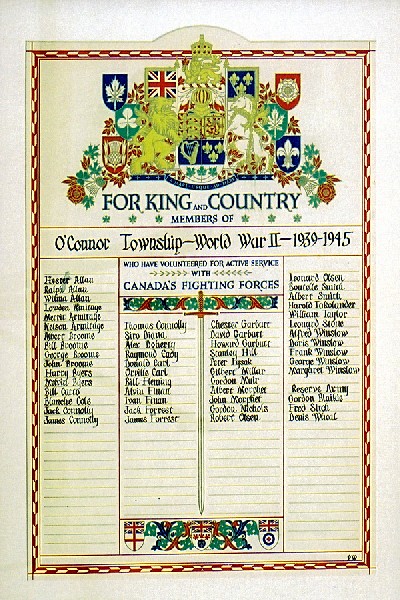 FOR KING AND COUNTRY
MEMBERS OF
O'Connor Township—World War II—1939-1945
WHO HAVE VOLUNTEERED FOR ACTIVE SERVICE
WITH
CANADA'S FIGHTING FORCES
Hester Allan
Ralph Allan
Wilma Allan
Lowden Armitage
Merrit Armitage
Nelson Armitage
Albert Broome
Bill Broome
George Broome
John Broome
Harry Byers
Harold Byers
Bill
Blanche Cole
Jack Connolly
James Connolly
Thomas Connolly
Siro
Alec Doherty
Raymond Cady
Donald Earl
Orville Earl
Bill Fleming
Alvin Finan
Ivan Finan
Jack Forrest
James Forrest
Chester Garbutt
David Garbutt
Howard Garbutt
Stanley Hill
Peter
Gilbert Millar
Gordon Muir
Albert
John
Gordon Nichols
Robert Olsen
Leonard Olsen
Smith
Albert Smith
Harold
William Taylor
Leonard Stone
Alfred Winslow
Doris Winslow
Frank Winslow
George Winslow
Margaret Winslow
Reserve Army
Gordon
Fred
Denis